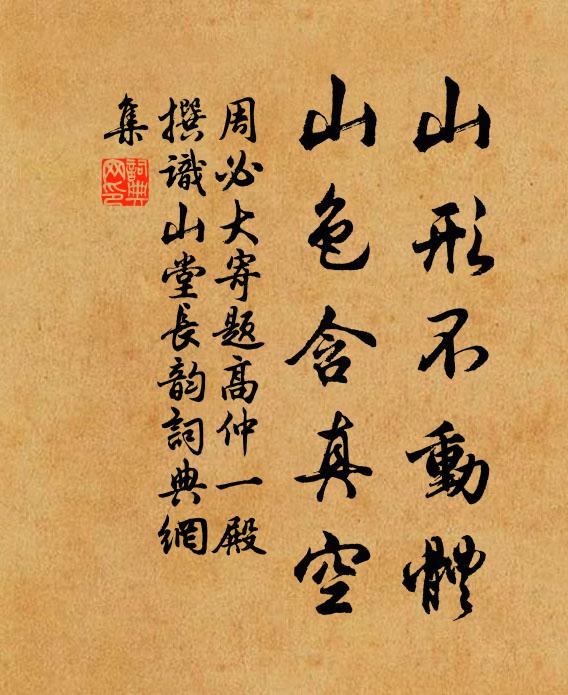 山形不動體
山色含真空
周必大寄題高仲一殿
撰識山堂長韵詞典網
集
詞典
网印